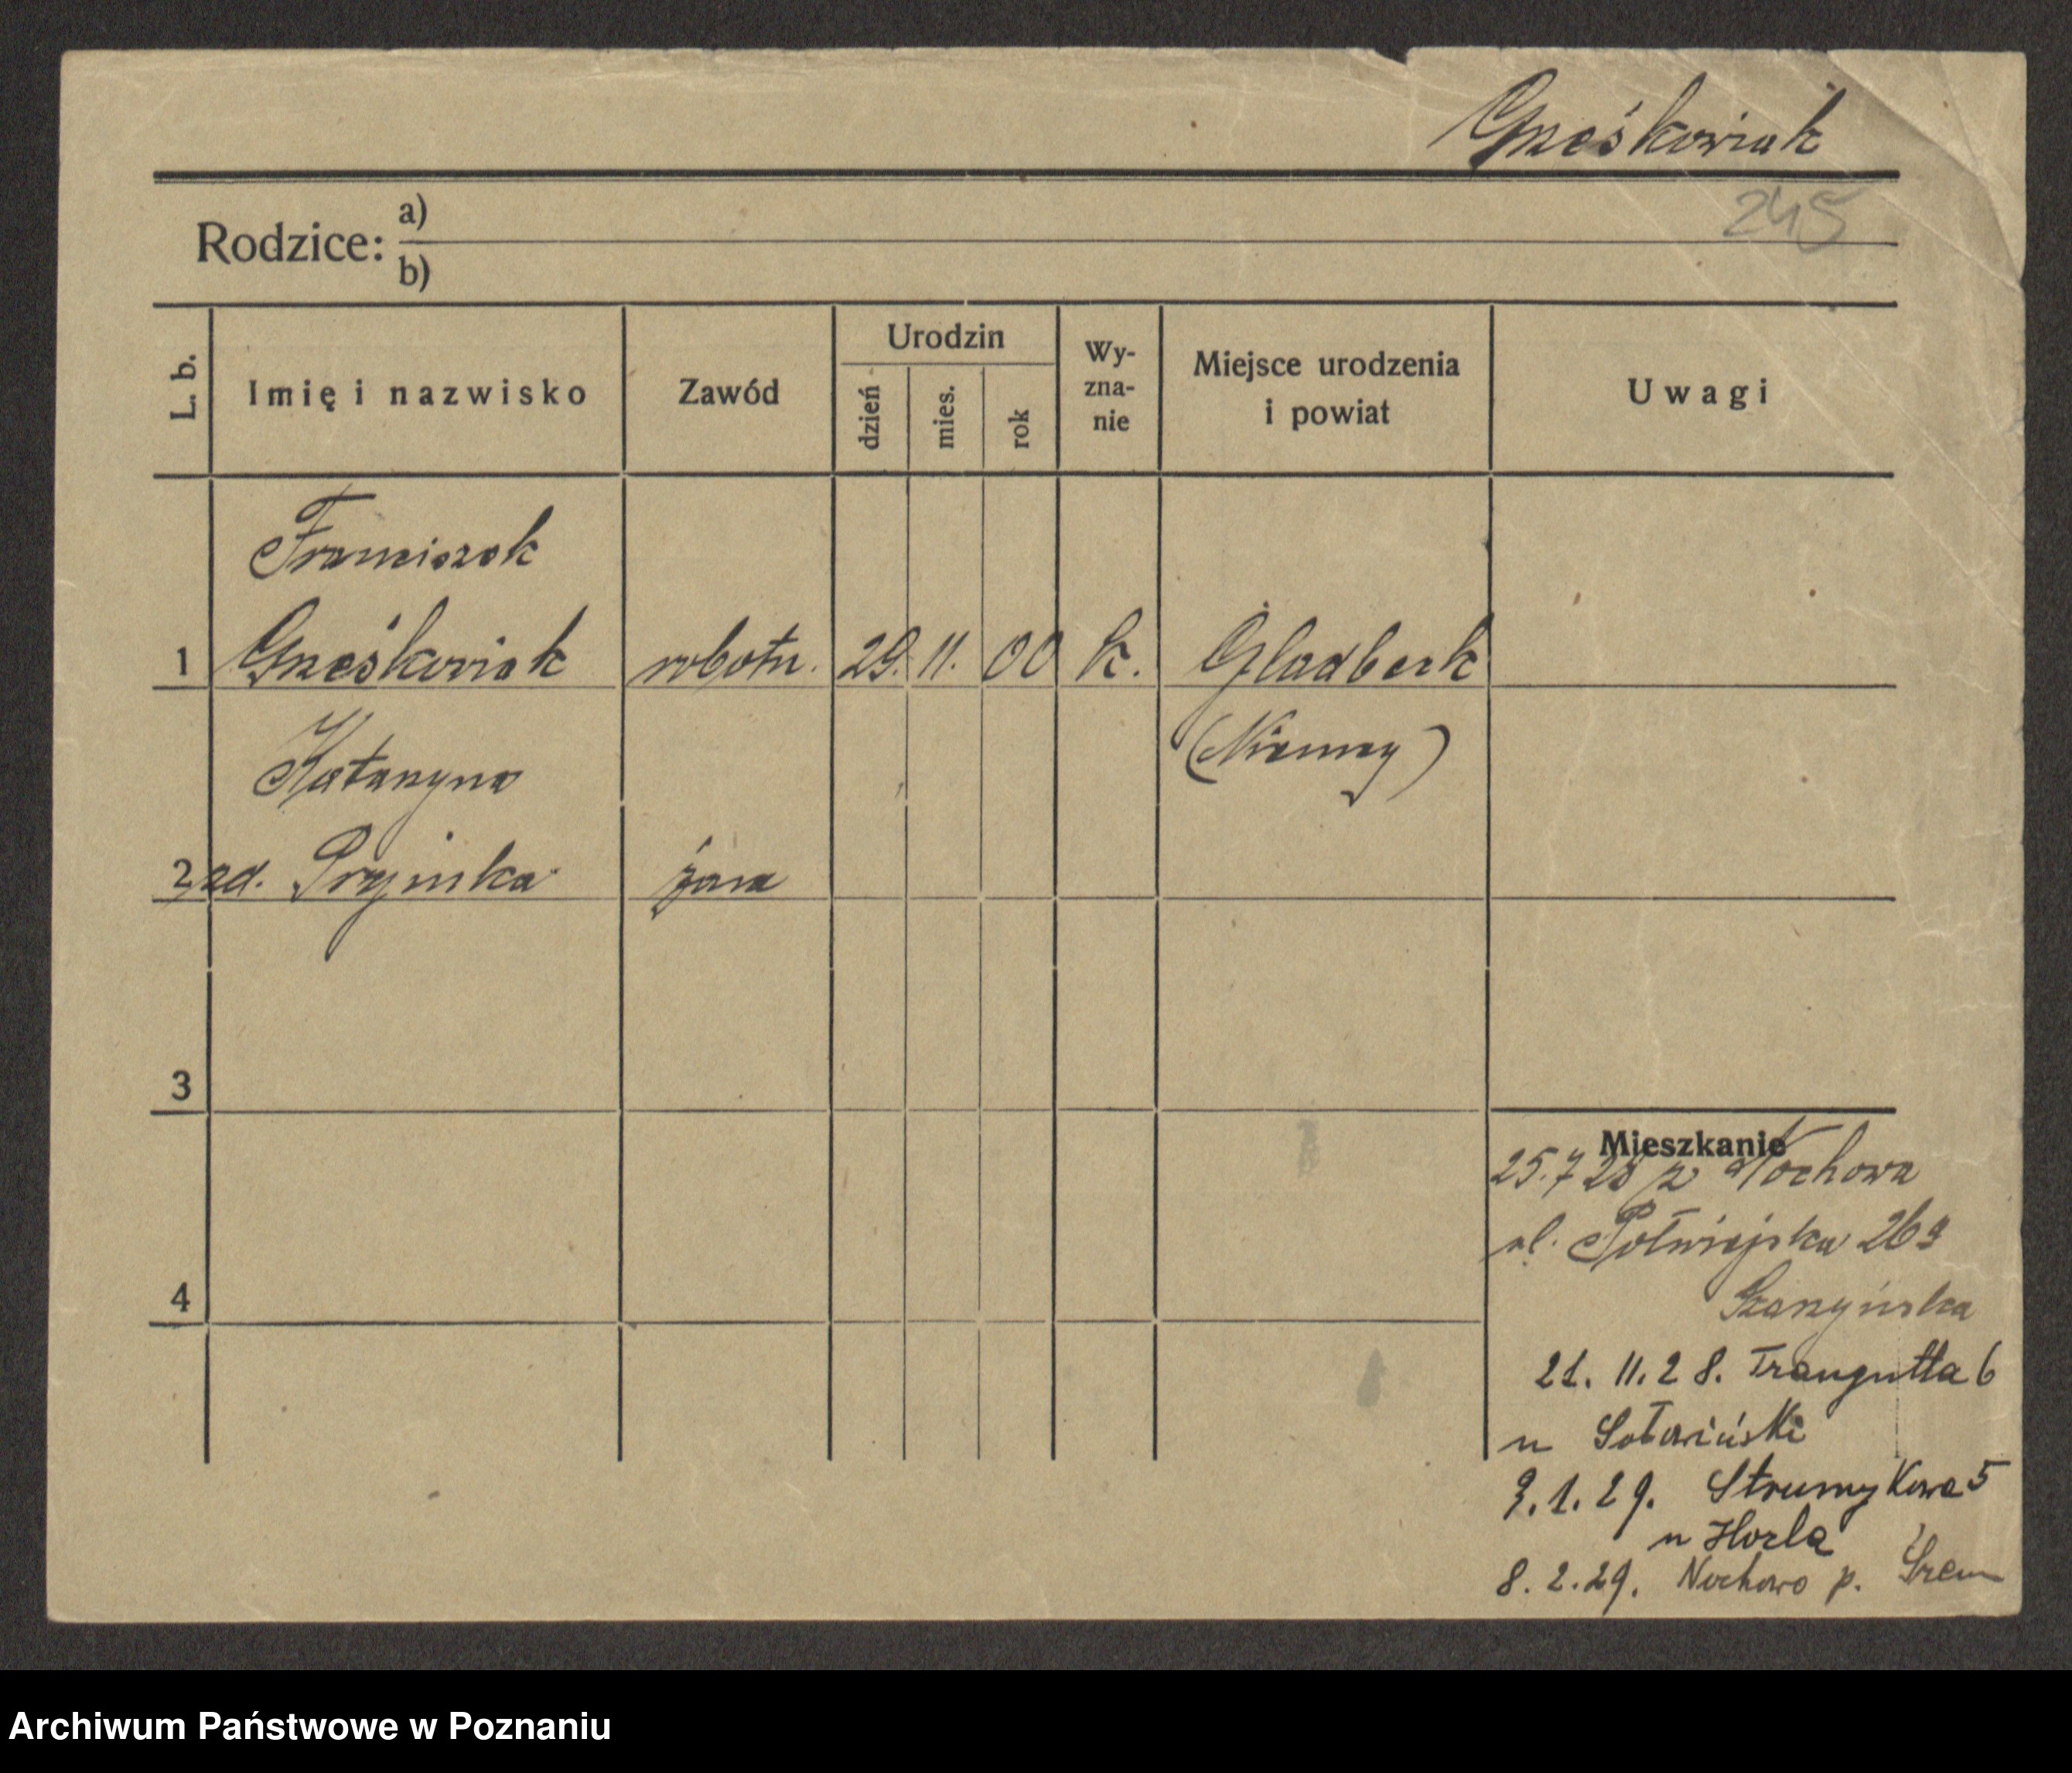 Grześkowiak
245
Rodzice: a)
b)
L. b.
Imię i nazwisko
Zawód
Urodzin
dzień
mies.
rok
Wy-
zna-
nie
Miejsce urodzenia
i powiat
Uwagi
Franciszek
1 Grześkowiak robotn. 29. 11. 00 k. Gladbeck
(Niemcy)
Katarzyna
2 zd. żona
3
4
Mieszkanie
25.7 28 z Nochowa
ul. Półwiejska 26
21. 11. 28. Traugutta 6
u
3. 1. 29. Strumykowa 5
u Horla
8. 2. 29. Nochowo p. Śrem
Archiwum Państwowe w Poznaniu